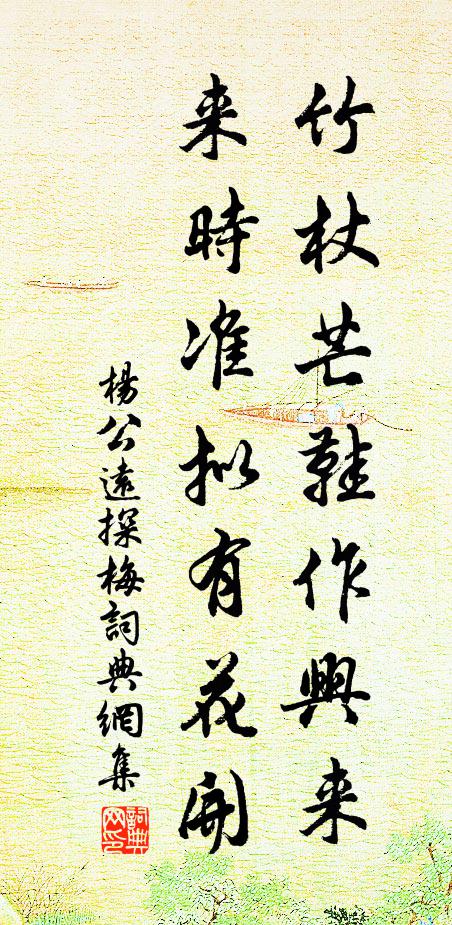 竹杖芒鞋作興来
来時准拟有花開
楊公遠探梅詞典網集
詞典网印